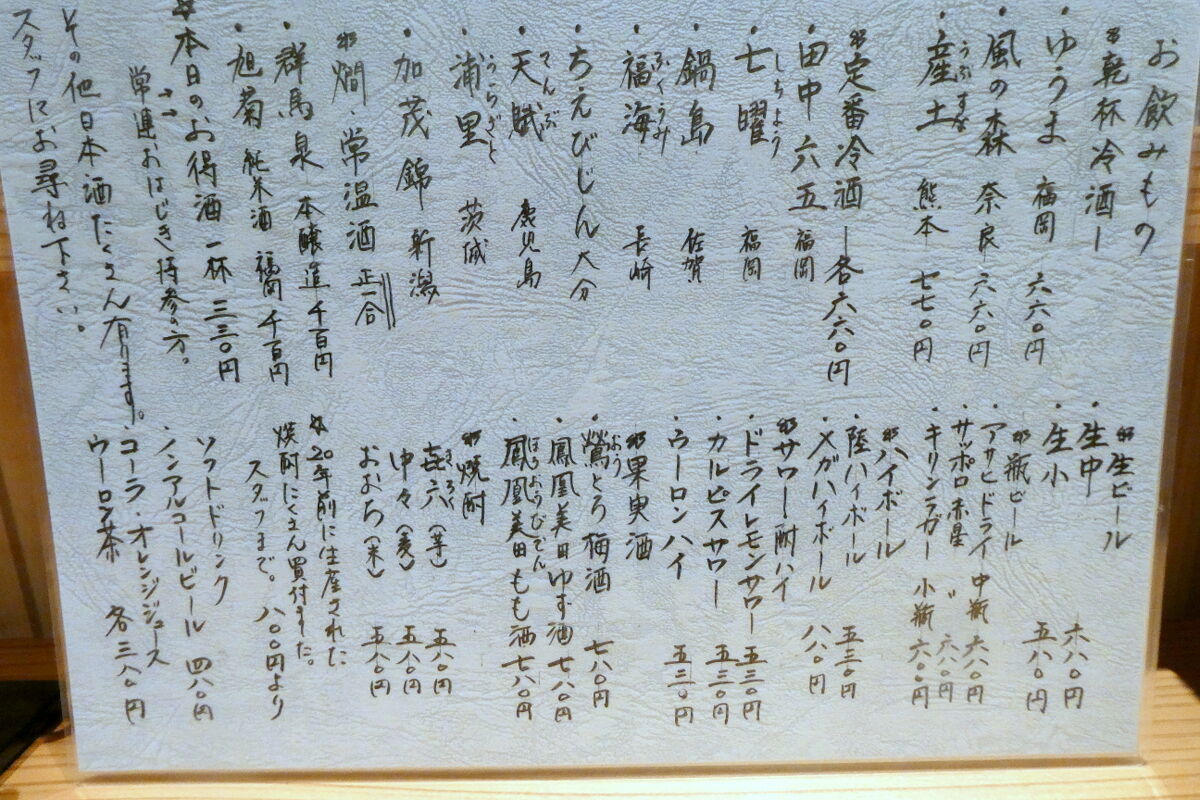 お飲みもの
*乾杯冷酒ー
・ゆうま 福岡 六六〇円
・風の森 奈良 六六〇円
・産土 うぶすな 熊本 七七〇円
*定番冷酒ー各六六〇円
・田中六五 福岡
・七曜 しちよう 福岡
・鍋島 佐賀
・福海 ふくうみ 長崎
・ちえびじん 大分
・天賦 てんぶ 鹿児島
・浦里 うらざと 茨城
・加茂錦 新潟
*燗・常温酒 正一合
・群馬泉 本醸造 千百円
・旭菊 純米酒 福岡 千百円
*本日のお得酒 一杯 三三〇円
常連おはじき持参の方。
その他日本酒たくさん有ります。
スタッフにお尋ね下さい。
*生ビール
・生中 六八〇円
・生小 五八〇円
*瓶ビール
・アサヒドライ 中瓶 六八〇円
・サッポロ赤星 〃 六八〇円
・キリンラガー 小瓶 六〇〇円
*ハイボール
・陸ハイボール 五三〇円
・メガハイボール 八八〇円
*サワー・酎ハイ
・ドライレモンサワー 五三〇円
・カルピスサワー 五三〇円
・ウーロンハイ 五三〇円
*果実酒
・鶯とろ梅酒 おう 七八〇円
・鳳凰美田ゆず酒 七八〇円
・鳳凰美田もも酒 ほうおうびでん 七八〇円
*焼酎
㐂六(芋) きろく 五八〇円
中々(麦) 五八〇円
おおち(米) 五八〇円
*20年前に生産された
焼酎たくさん買付ました。
スタッフまで。八〇〇円より
ソフトドリンク
・ノンアルコールビール 四八〇円
・コーラ・オレンジジュース
ウーロン茶 各三八〇円